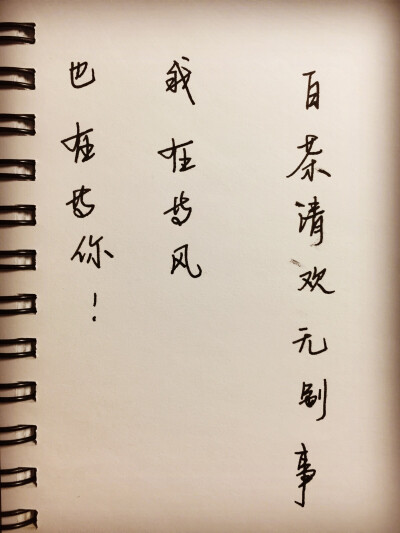 百茶清欢无别事
我在等风
也在等你!